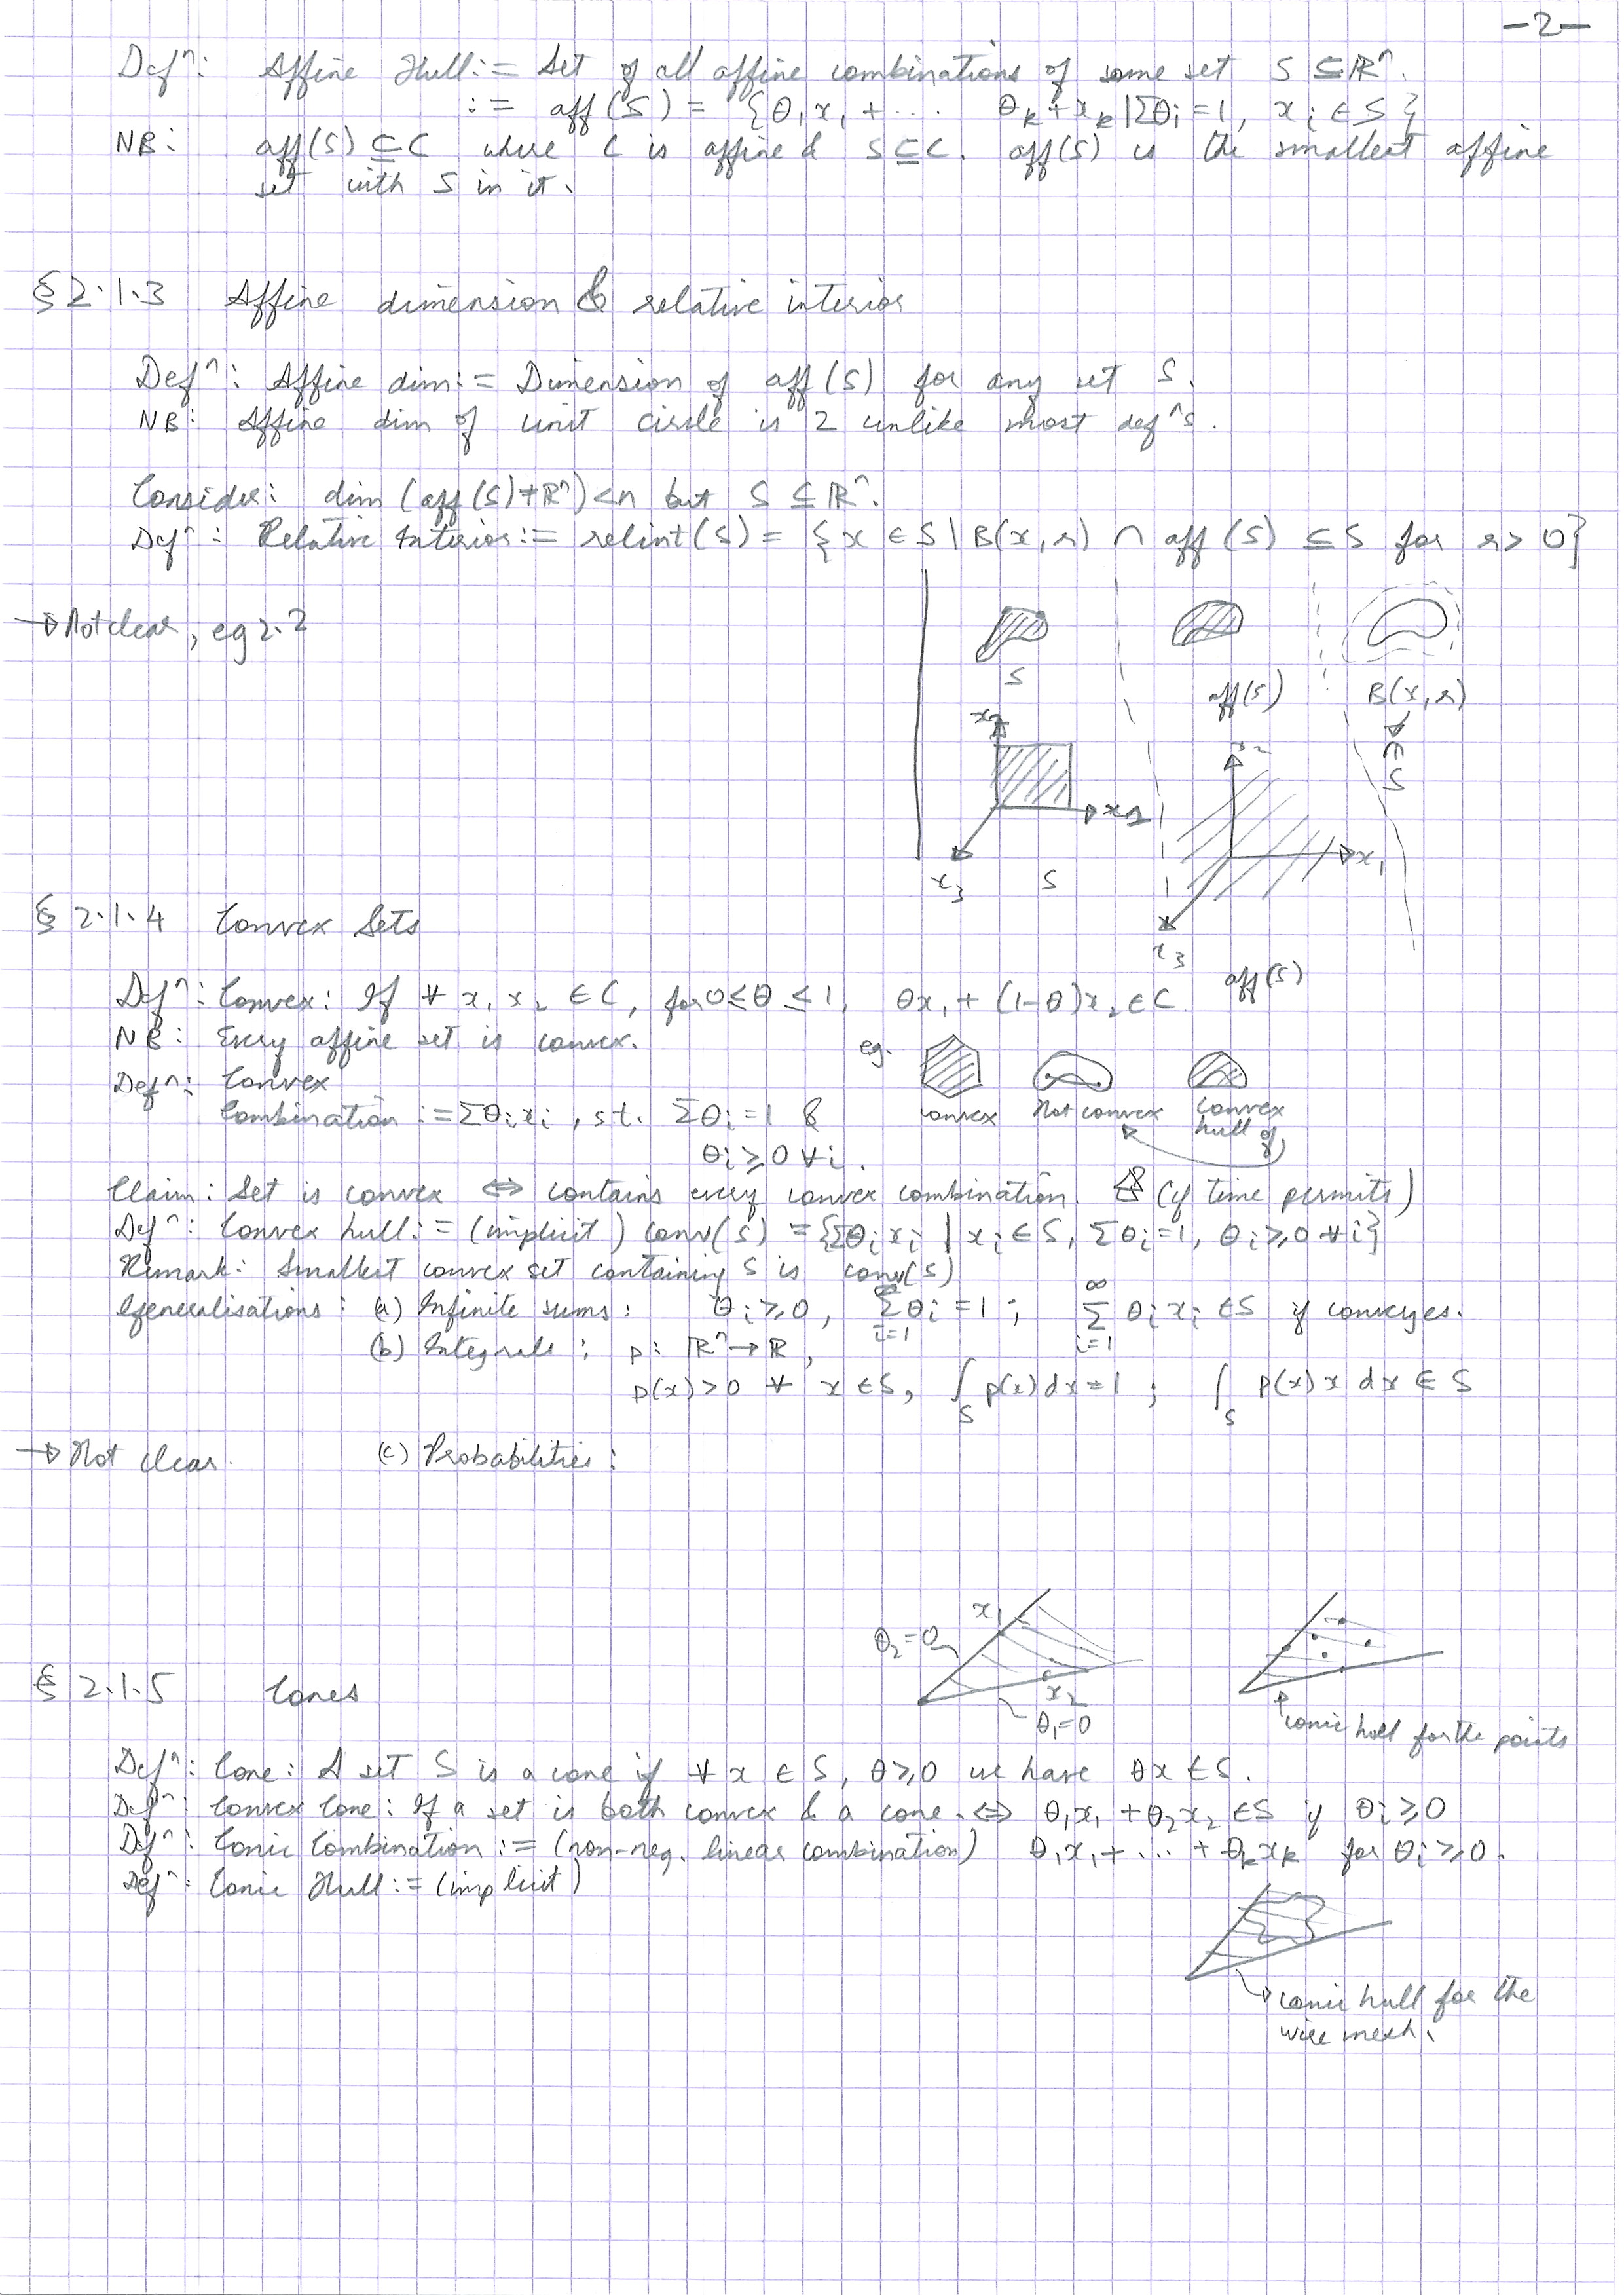 -2-
Defⁿ: Affine Hull := Set of all affine combinations of some set S ⊆ ℝⁿ.
:= aff(S) = {θ₁x₁ + ... θₖ+xₖ | Σθᵢ = 1, xᵢ ∈ S}
NB: aff(S) ⊆ C where C is affine & S ⊆ C. aff(S) is the smallest affine
set with S in it.
§ 2.1.3 Affine dimension & relative interior
Defⁿ: Affine dim := Dimension of aff(S) for any set S.
NB: Affine dim of unit circle is 2 unlike most defⁿs.
Consider: dim (aff(S) ≠ ℝⁿ) < n but S ⊆ ℝⁿ.
Defⁿ: Relative Interior := relint(S) = {x ∈ S | B(x,r) ∩ aff(S) ⊆ S for r > 0}
→ Not clear, eg 2.2
S
aff(S)
B(x,r)
∈
S
x₂
x₁
x₃
S
x₁
x₃
aff(S)
§ 2.1.4 Convex Sets
Defⁿ: Convex: If ∀ x₁ x₂ ∈ C, for 0 ≤ θ ≤ 1, θx₁ + (1-θ)x₂ ∈ C
NB: Every affine set is convex.
eg.
Defⁿ: Convex
Combination := Σθᵢxᵢ, s.t. Σθᵢ = 1 &
θᵢ ≥ 0 ∀i.
convex
Not convex
Convex
hull of
Claim: Set is convex ⇔ contains every convex combination. (if time permits)
Defⁿ: Convex hull := (implicit) conv(S) = {Σθᵢxᵢ | xᵢ ∈ S, Σθᵢ = 1, θᵢ ≥ 0 ∀i}
Remark: Smallest convex set containing S is conv(S)
Generalisations: (a) Infinite sums: θᵢ ≥ 0, ∞Σi=1 θᵢ = 1; ∞Σi=1 θᵢxᵢ ∈ S if converges.
(b) Integrals: p: ℝⁿ → ℝ,
p(x) > 0 ∀ x ∈ S, ∫_S p(x) dx = 1; ∫_S p(x) x dx ∈ S
→ Not clear. (c) Probabilities:
x₁
θ₂=0
x₂
θ₁=0
conic hull for the points
§ 2.1.5 Cones
Defⁿ: Cone: A set S is a cone if ∀ x ∈ S, θ ≥ 0 we have θx ∈ S.
Defⁿ: Convex Cone: If a set is both convex & a cone. ⇔ θ₁x₁ + θ₂x₂ ∈ S if θᵢ ≥ 0
Defⁿ: Conic Combination := (non-neg. linear combination) θ₁x₁ + ... + θₖxₖ for θᵢ ≥ 0.
Defⁿ: Conic Hull := (implicit)
conic hull for the
wire mesh.